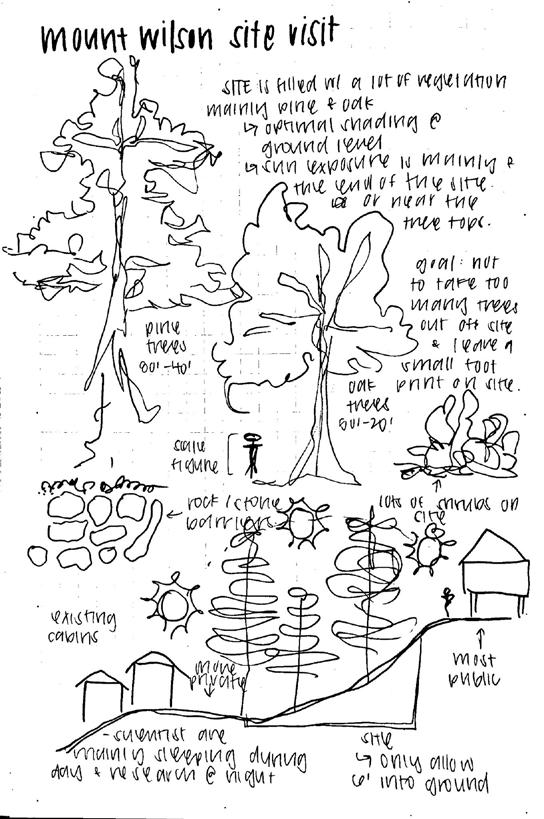 mount wilson site visit
SITE is filled w/ a lot of vegetation
mainly pine & oak
↳ optimal shading @
ground level
↳ sun exposure is mainly @
the end of the site.
or near the
tree tops.
goal: not
to take too
many trees
out off site
& leave a
small foot
print on site.
pine
trees
80'-40'
oak
trees
scale
figure
← rock/stone
barriers
lots of shrubs on
site
existing
cabins
more
private
most
public
- scientist are
mainly sleeping during
day & research @ night
site
↳ only allow
6' into ground